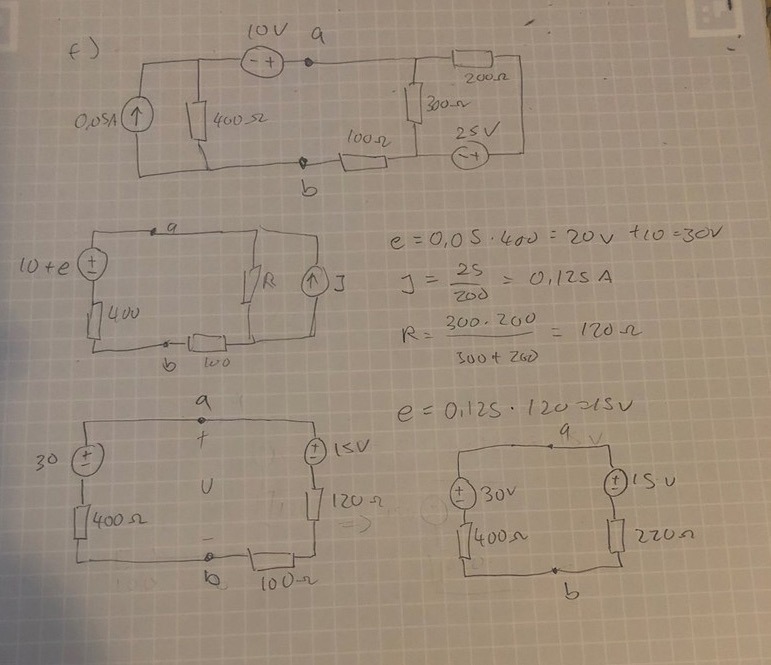 f)
10V
a
- +
0,05A
400Ω
300Ω
200Ω
100Ω
25V
- +
b
a
10+e
±
400
R
J
b
100
e = 0,05 · 400 = 20V +10 = 30V
J = 25/200 = 0,125 A
R = 300 · 200/300 + 200 = 120 Ω
e = 0,125 · 120 = 15V
a
+
30
±
U
±
15V
400Ω
120Ω
=>
-
b
100Ω
a
±
30V
±
15V
400Ω
220Ω
b